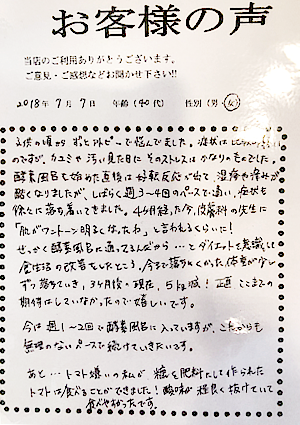 お客様の声
当店のご利用ありがとうございます。
ご意見・ご感想などお聞かせ下さい!!
2018年 7月 7日 年齢(40代) 性別(男・女)
子供の頃からずっとアトピーで悩んでました。症状は
のですが、カユミや汚い見た目にそのストレスはかなりのものでした。
酵素風呂を始めた直後は好転反応が出て、湿疹や痒みが
酷くなりましたが、しばらく週3〜4回のペースで通い、症状も
徐々に落ち着いてきました。4ヶ月経った今、皮膚科の先生に
「肌がワントーン明るくなったね」と言われるくらいに!
せっかく酵素風呂に通ってるんだから…とダイエットも意識して
食生活の改善をしたところ、今まで落ちなかった体重が少し
ずつ落ちていき、3ヶ月後の現在、5kg減! 正直ここまでの
期待はしていなかったので嬉しいです。
今は週1〜2回で酵素風呂に入っていますが、これからも
無理のないペースで続けていきたいです。
あと…トマト嫌いの私が糠を肥料として作られた
トマトは食べることができました! 酸味が程良く抜けていて
食べやすかったです。